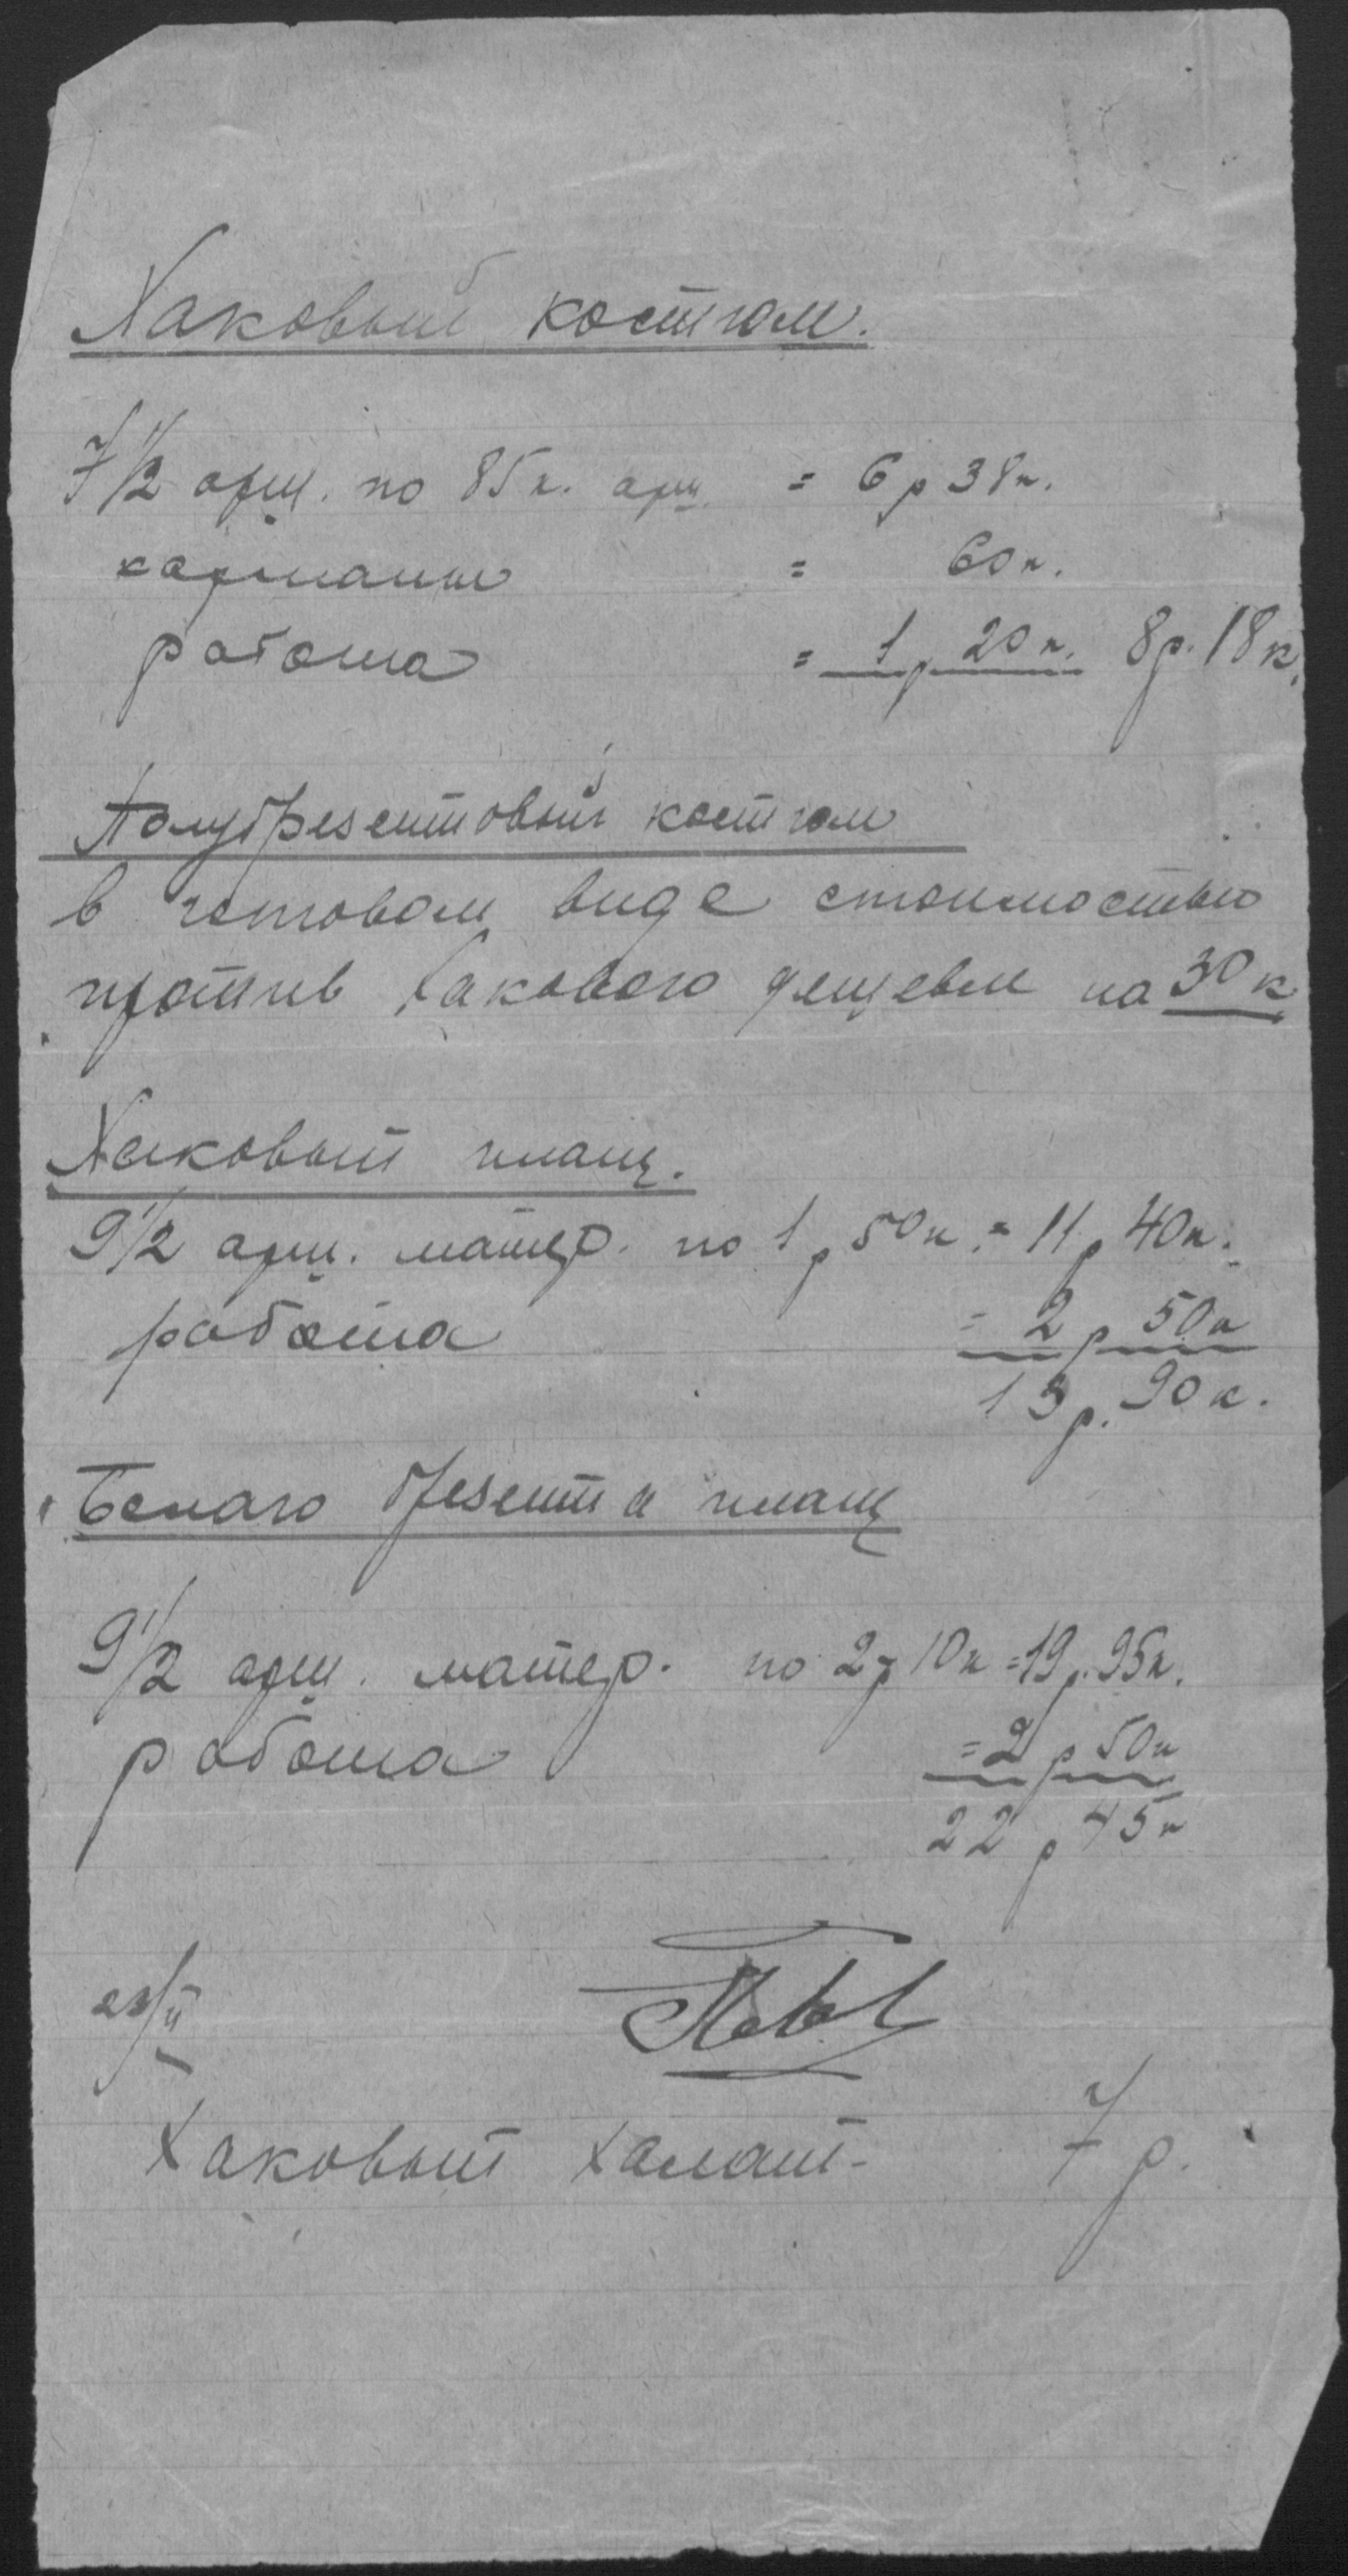 Хаковый костюм.
7 1/2 арш. по 85 к. арш. = 6 р 38 к.
карманы = 60 к.
работа = 1 р 20 к. 8 р. 18 к.
Полубрезентовый костюм
в готовом виде стоимостью
против хакового дешевле на 30 к
Хаковый плащ.
9 1/2 арш. матер. по 1 р 50 к. = 11 р 40 к.
работа = 2 р 50 к
13 р. 90 к.
Белаго брезента плащ
9 1/2 арш. матер. по 2 р 10 к = 19 р. 95 к.
работа = 2 р 50 к
22 р 45 к
Хаковый халат - 7 р.